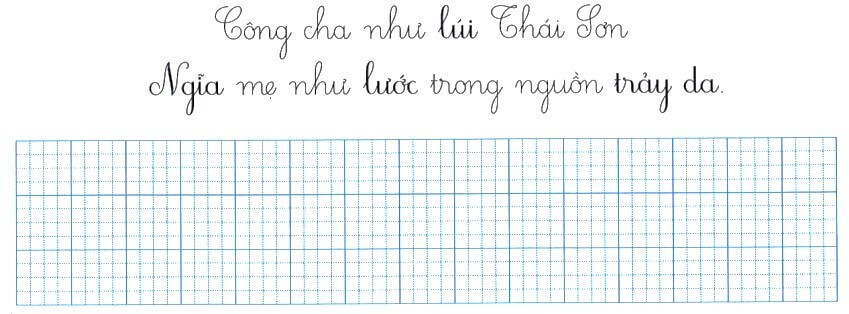 Công cha như lúi Thái Sơn
Ngĩa mẹ như lước trong nguồn trảy da.